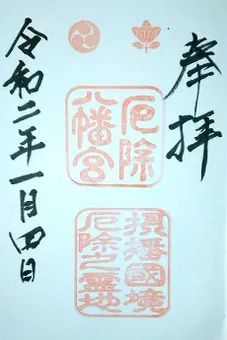 奉拝
厄除
八幡宮
摂播國境
厄除之霊地
令和二年一月四日